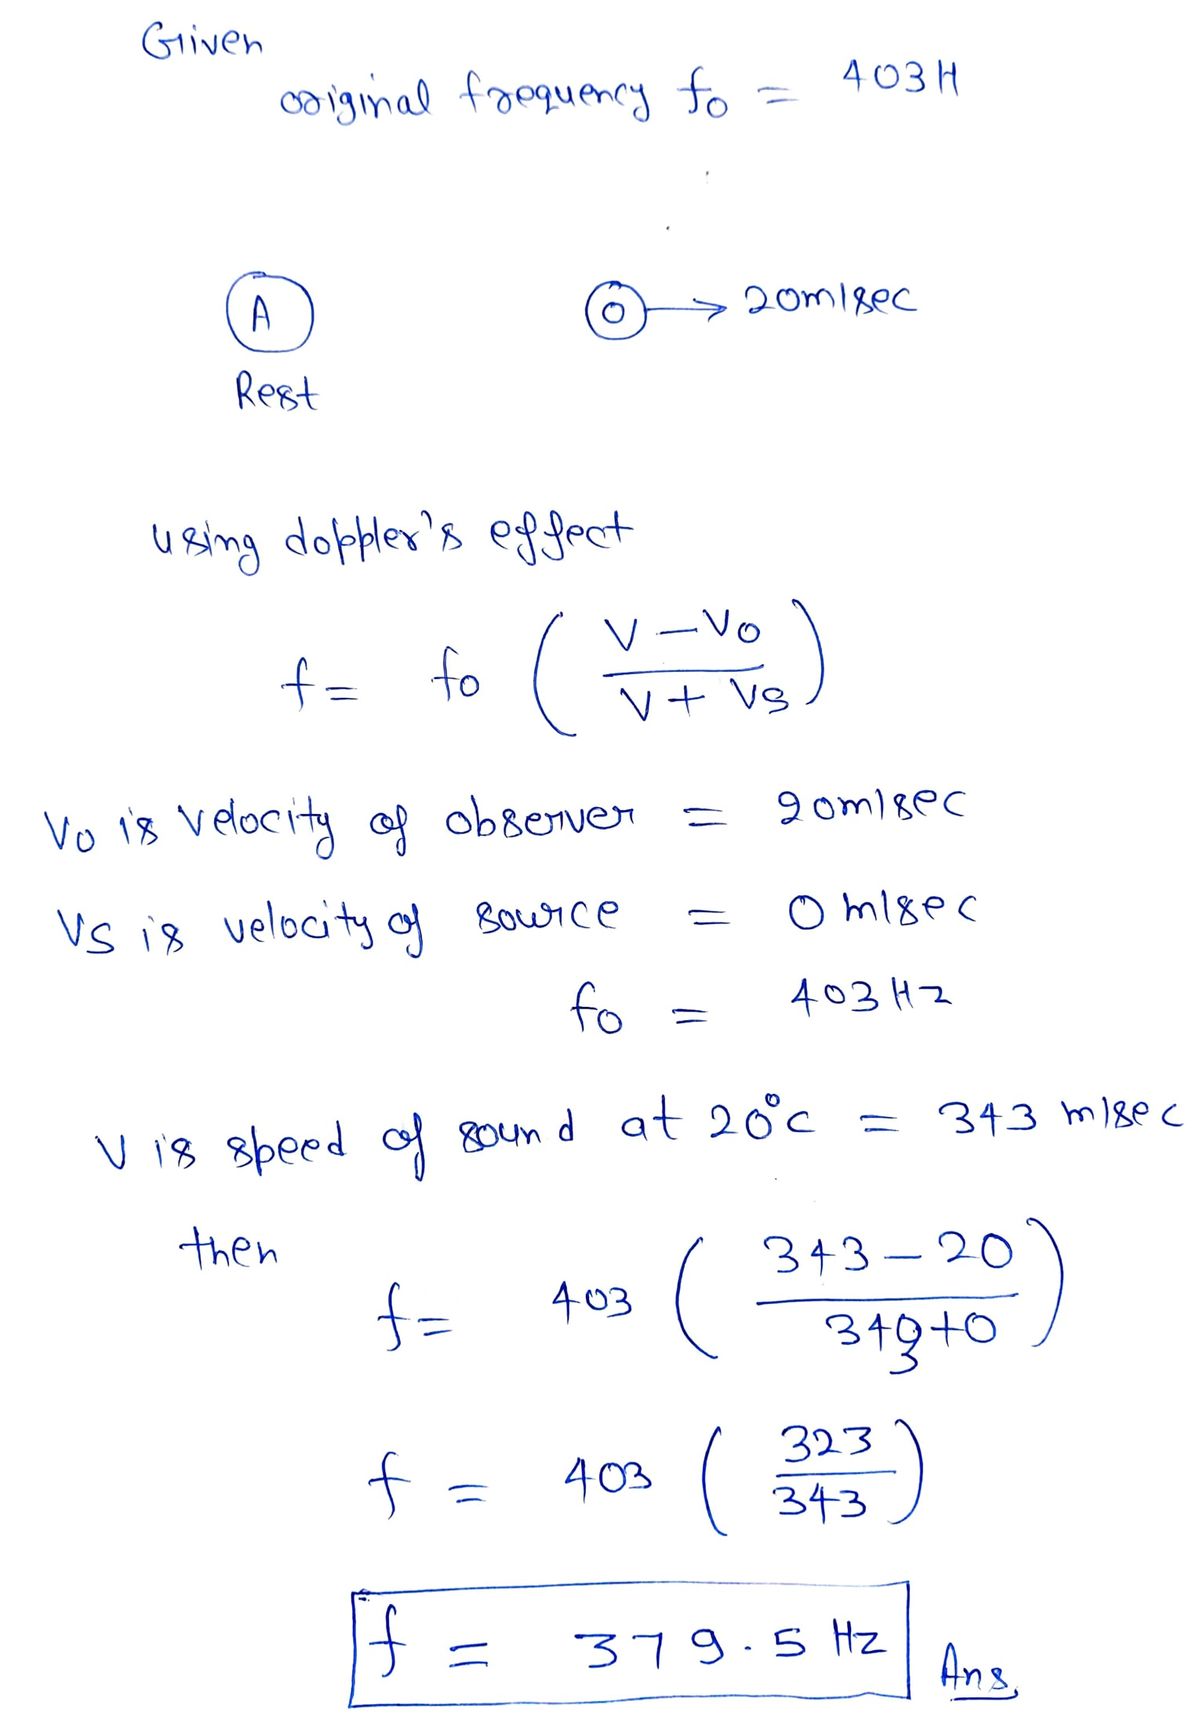 Given
original frequency fo = 403H
A
O → 20m/sec
Rest
using doppler's effect
f = fo ( V - Vo / V + Vs )
Vo is velocity of observer = 20m/sec
Vs is velocity of source = 0 m/sec
fo = 403 Hz
V is speed of sound at 20°c = 343 m/sec
then
f = 403 ( 343 - 20 / 343 + 0 )
f = 403 ( 323 / 343 )
f = 379.5 Hz Ans,